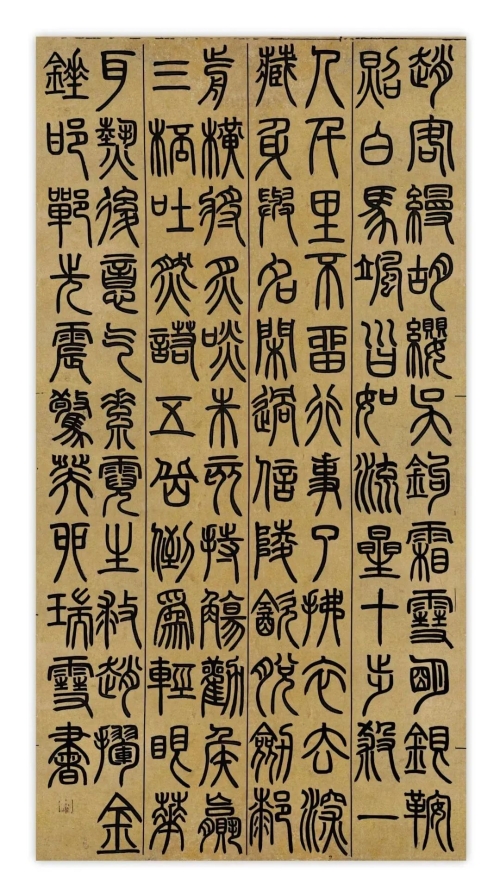 趙客縵胡纓吳鉤霜雪明銀鞍
照白馬颯沓如流星十步殺一
人千里不留行事了拂衣去深
藏身與名閑過信陵飲脫劍厀
前橫將炙啖朱亥持觴勸侯嬴
三桮吐然諾五岳倒為輕眼華
耳熱後意气素霓生救趙揮金
錘邯鄲先震驚癸卯瑞雪書